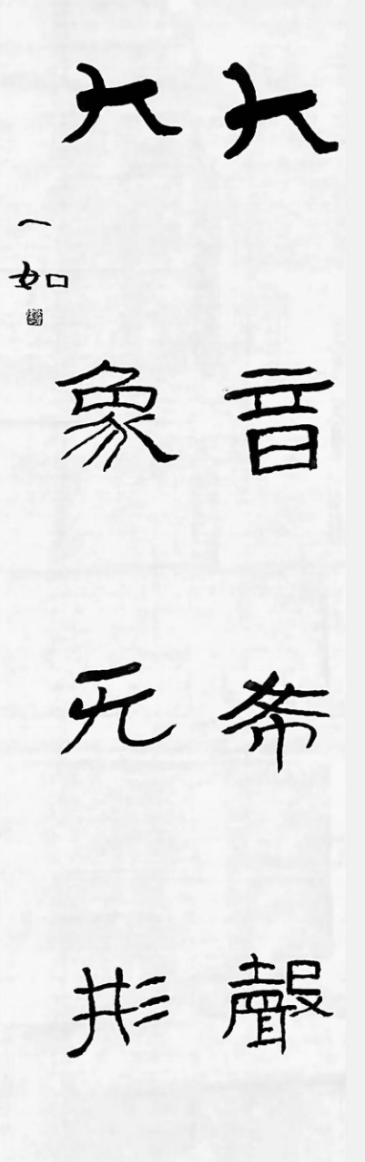 大音希聲
大象无形
一如